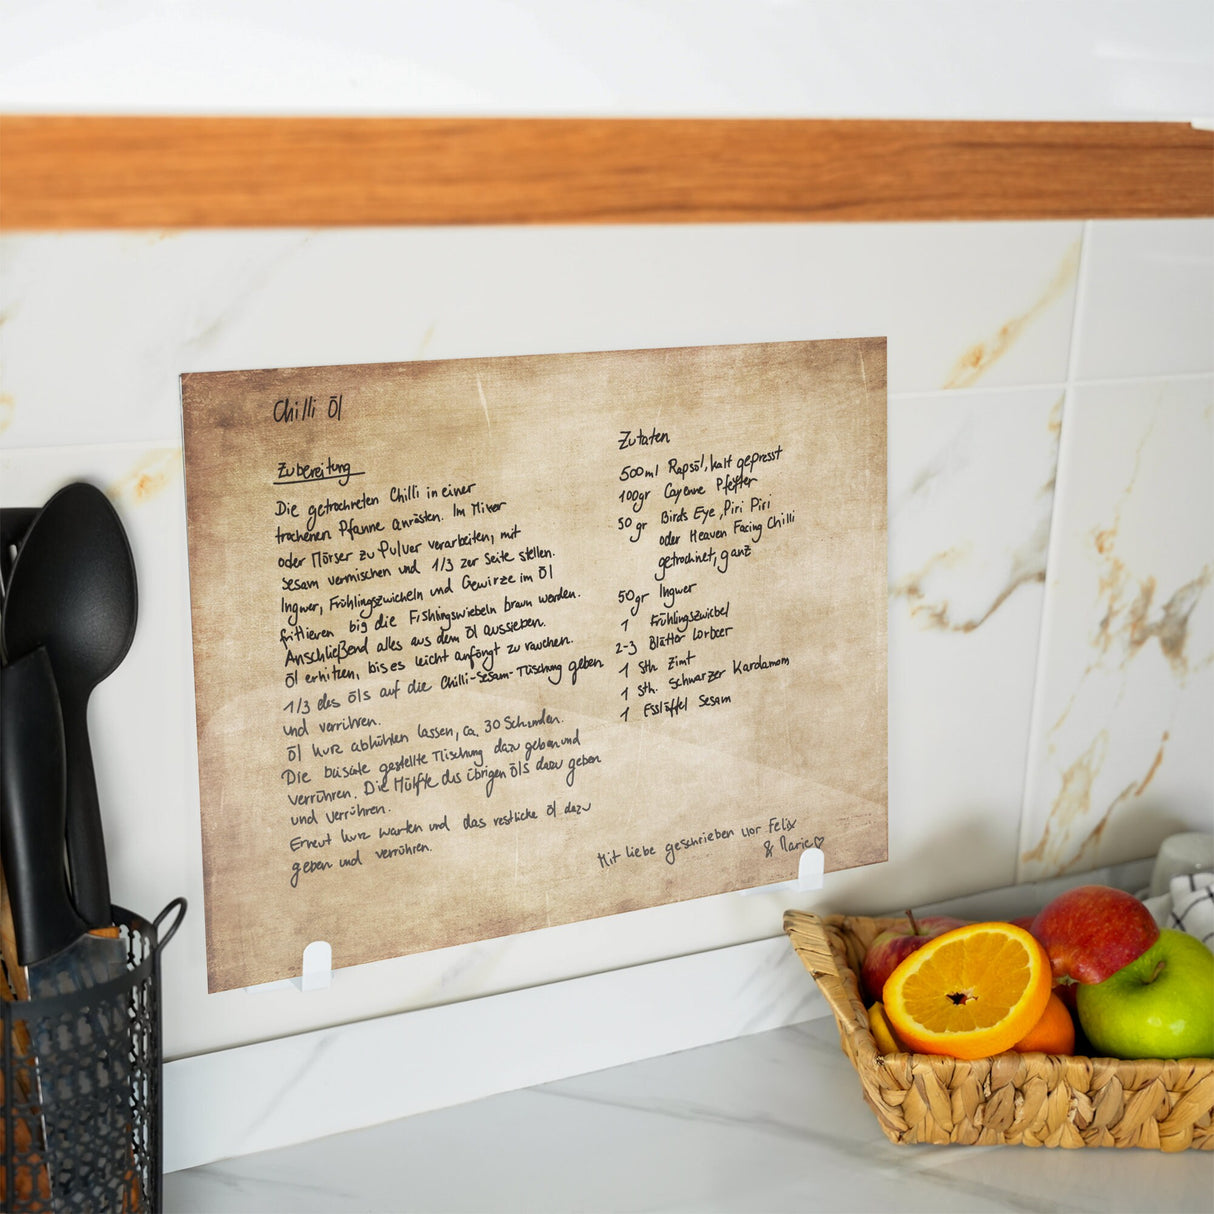 Chilli Öl
Zubereitung
Die getrockneten Chilli in einer
trockenen Pfanne anrösten. Im Mixer
oder Mörser zu Pulver verarbeiten, mit
Sesam vermischen und 1/3 zur Seite stellen.
Ingwer, Frühlingszwiebeln und Gewürze im Öl
frittieren big die Frühlingswiebeln braun werden.
Anschließend alles aus dem Öl aussieben.
Öl erhitzen, bis es leicht anfängt zu rauchen.
1/3 des Öls auf die Chilli-Sesam-Mischung geben
und verrühren.
Öl kurz abkühlen lassen, ca. 30 Sekunden.
Die beisate gestellte Mischung dazu geben und
verrühren. Die Hälfte des übrigen Öls dazu geben
und verrühren.
Erneut kurz warten und das restliche Öl dazu
geben und verrühren.
Zutaten
500ml Rapsöl, kalt gepresst
100gr Cayenne Pfeffer
50gr Birds Eye, Piri Piri
oder Heaven Facing Chilli
getrocknet, ganz
50gr Ingwer
1 Frühlingszwiebel
2-3 Blätter Lorbeer
1 Stk. Zimt
1 Stk. Schwarzer Kardamom
1 Esslöffel Sesam
Mit liebe geschrieben von Felix
& Marie ♡